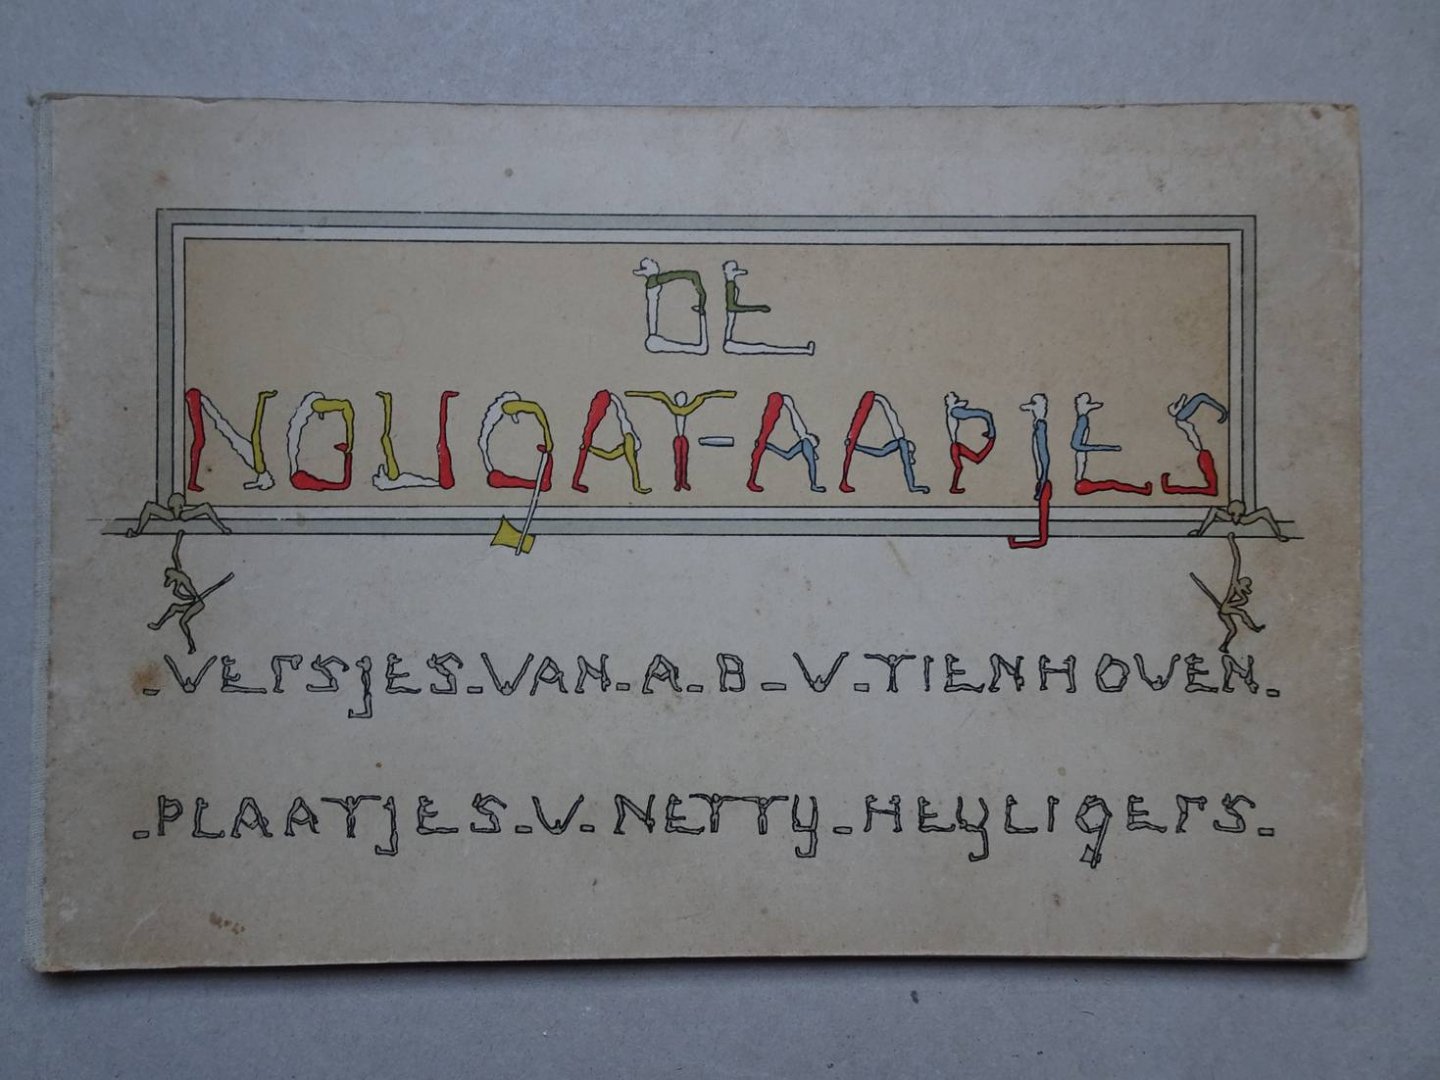 DE
NOUGAT-AAPJES
-VERSJES-VAN-A-B-V-TIENHOVEN-
-PLAATJES-V-NETTY-HEYLIGERS-